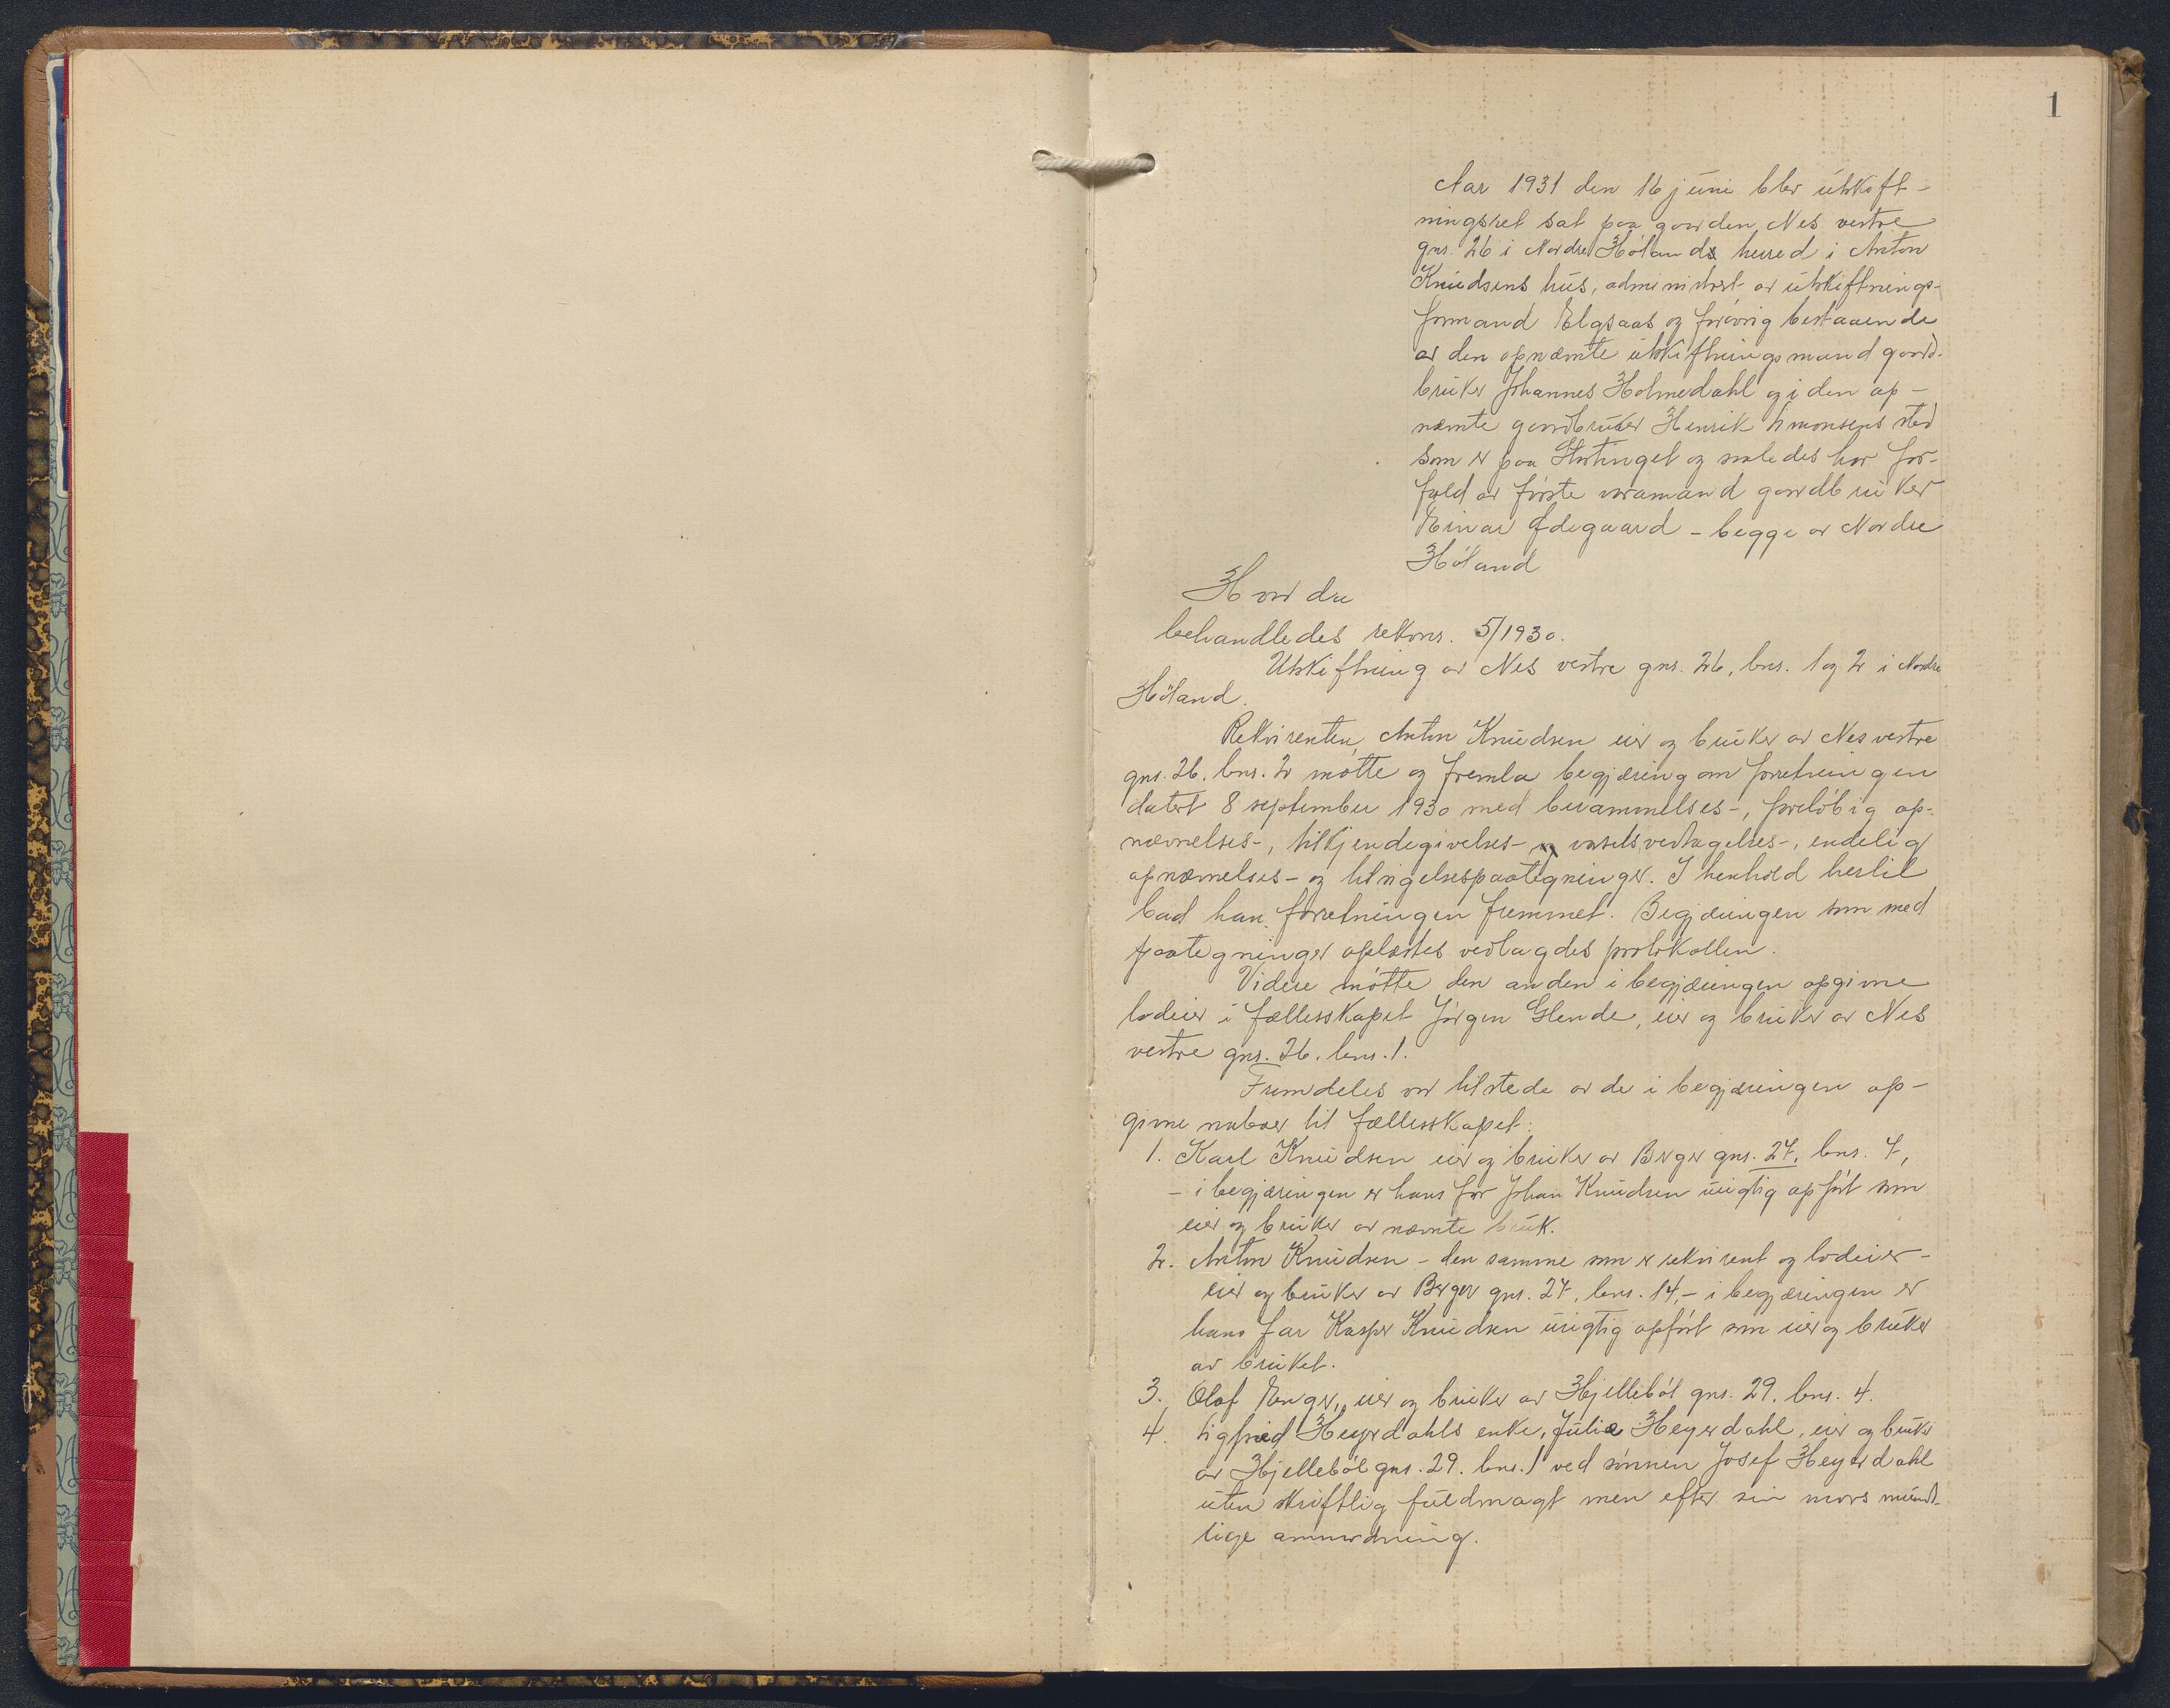 1
Aar 1931 den 16 juni blev utskift-
ningsret sat paa gaarden Nes vestre
gnr. 26 i Nordre Hølands herred i Anton
Knudsens hus, administrert av utskiftnings-
formand Elgsaas og forøvrig bestaaende
av den opnævnte utskiftningsmand gaard-
bruker Johannes Holmedahl og i den op-
nævnte gaardbruker Henrik Simonsens sted
som er paa Stortinget og saaledes har for-
fald av første varamand gaardbruker
Einar Ødegaard - begge av Nordre
Høland
Hvorda
behandledes rekvns. 5/1930.
Utskiftning av Nes vestre gnr. 26, bnr. 1 og 2 i Nordre
Høland.
Rekvirenten, Anton Knudsen eier og bruker av Nes vestre
gnr. 26. bnr. 2 møtte og fremla begjæring om forretningen
datert 8 september 1930 med berammelses-, foreløbig op-
nævnelses-, tilkjendegivelses- varselsvedtagelses-, endelig
opnævnelses- og tilsigelsespaategninger. I henhold hertil
bad han forretningen fremmet. Begjæringen som med
paategninger oplæstes vedlagdes protokollen.
Videre møtte den anden i begjæringen opgivne
lodeier i fællesskapet Jørgen Glende, eier og bruker av Nes
vestre gnr. 26. bnr. 1.
Fremdeles var tilstede av de i begjæringen op-
givne naboer til fællesskapet:
1. Karl Knudsen eier og bruker av Berger gnr. 27. bnr. 7,
- i begjæringen er hans far Johan Knudsen urigtig opført som
eier og bruker av nævnte bruk.
2. Anton Knudsen - den samme som er rekvirent og lodeier -
eier og bruker av Berger gnr. 27, bnr. 14, - i begjæringen er
hans far Kasper Knudsen urigtig opført som eier og bruker
av bruket.
3. Olaf Enger, eier og bruker av Hjellebøl gnr. 29. bnr. 4.
4. Sigfried Heyerdahls enke, Julie Heyerdahl, eier og bruker
av Hjellebøl gnr. 29. bnr. 1 ved sønnen Josef Heyerdahl
uten skriftlig fuldmagt men efter sin mors mundt-
lige anmodning.